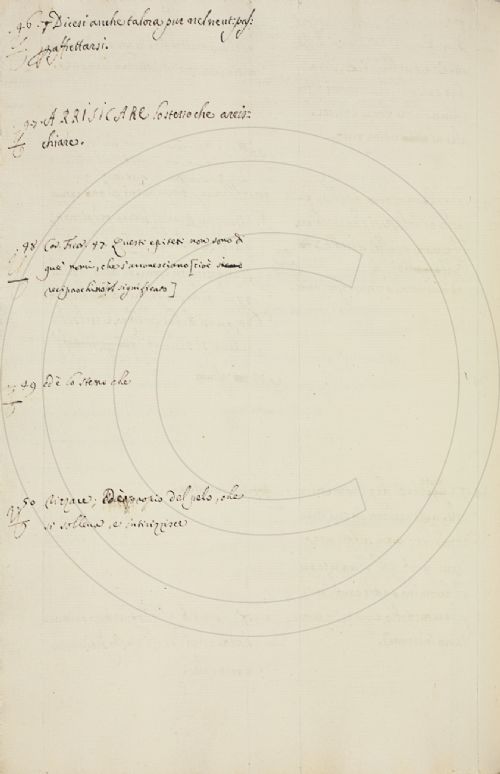 46. Dicesi anche talora pur nel neut: pass:
affettarsi.
47. ARRISICARE lo stesso che arris:
chiare.
48 Cas. Fior. 47. Questi epiteti non sono di
que' nomi, che s'arrovesciano [cioè
reciprochino il significato]
49 ed è lo stesso che
50 ; ed è proprio del pelo, che
si solleva, e intirizzisce